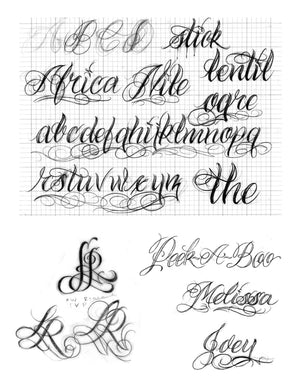 A B C D stick
Africa Nile lentil
ogre
abcdefghijklmnopq
rstuvwxyz the
LR
Peek-A-Boo
Melissa
LR LR
Joey